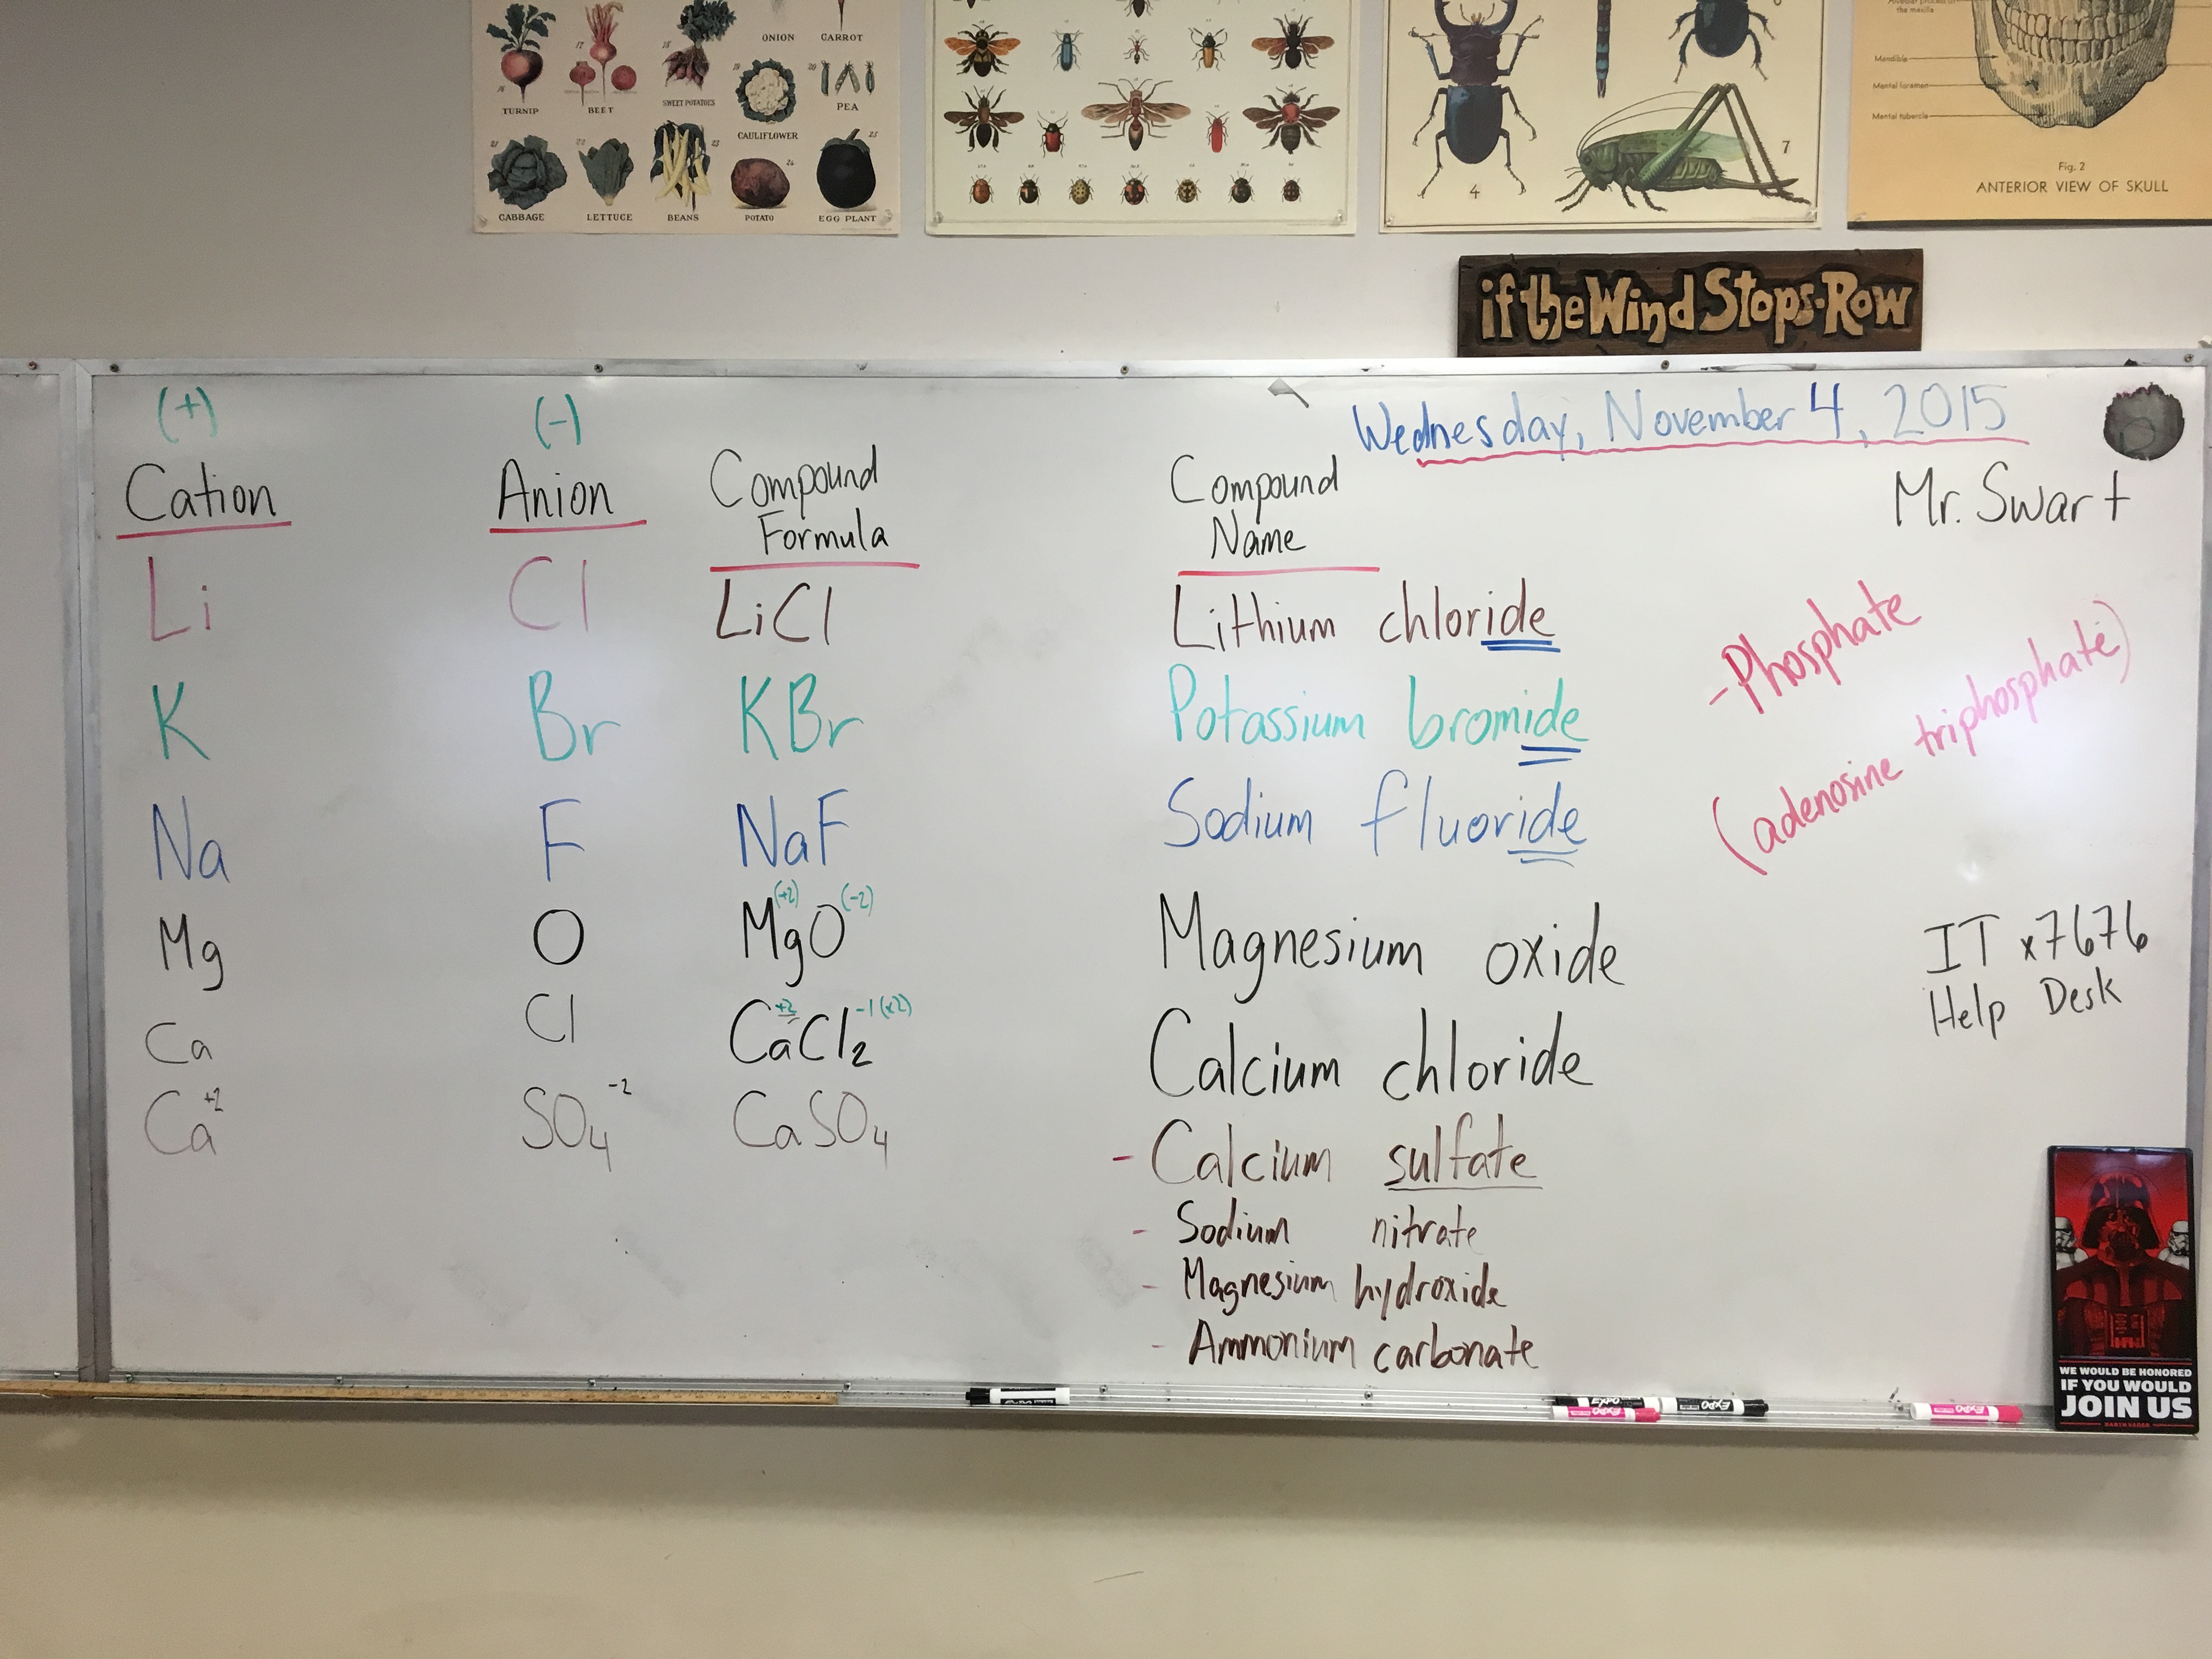 ONION CARROT
TURNIP BEET SWEET POTATOES CAULIFLOWER PEA
CABBAGE LETTUCE BEANS POTATO EGG PLANT
4
7
Mandible
Mental foramen
Mental tubercle
Fig. 2
ANTERIOR VIEW OF SKULL
if the Wind Stops-Row
Wednesday, November 4, 2015
Mr. Swart
(+) (-)
Cation Anion Compound Formula Compound Name
Li Cl LiCl Lithium chloride
K Br KBr Potassium bromide
Na F NaF Sodium fluoride
Mg O Mg(+2)O(-2) Magnesium oxide
Ca Cl Ca+2Cl2-1(x2) Calcium chloride
Ca+2 SO4-2 CaSO4 - Calcium sulfate
- Sodium nitrate
- Magnesium hydroxide
- Ammonium carbonate
- Phosphate
(adenosine triphosphate)
IT x7676
Help Desk
WE WOULD BE HONORED
IF YOU WOULD
JOIN US
DARTH VADER
EXPO
EXPO
EXPO
EXPO
EXPO